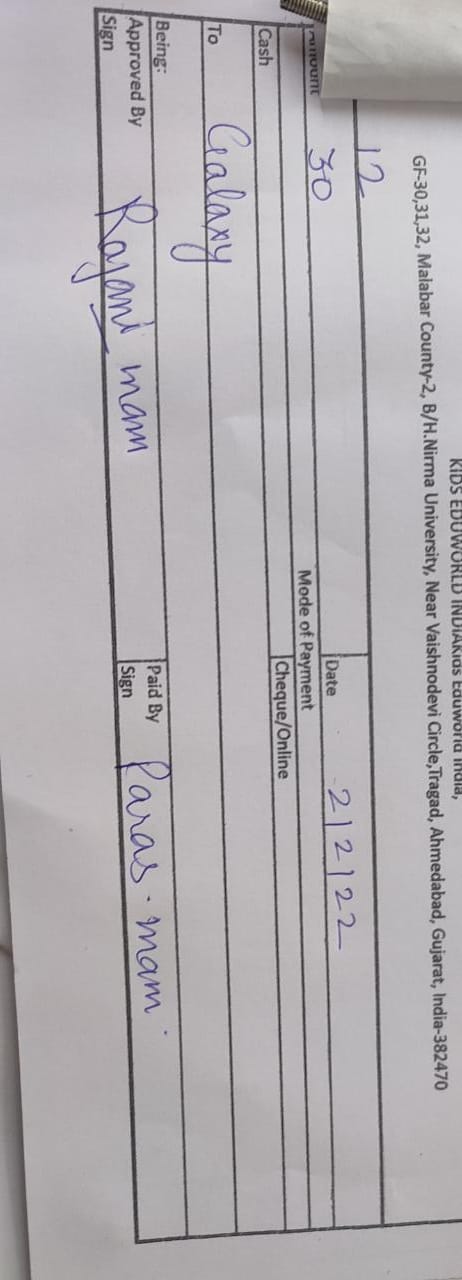 KIDS EDUWORLD INDIAKids Eduworld India,
GF-30,31,32, Malabar County-2, B/H.Nirma University, Near Vaishnodevi Circle,Tragad, Ahmedabad, Gujarat, India-382470
12
Date 2/2/22
Amount 30
Mode of Payment
Cash Cheque/Online
To Galaxy
Being:
Approved By Paid By
Sign Rajani mam Sign Paras. mam.